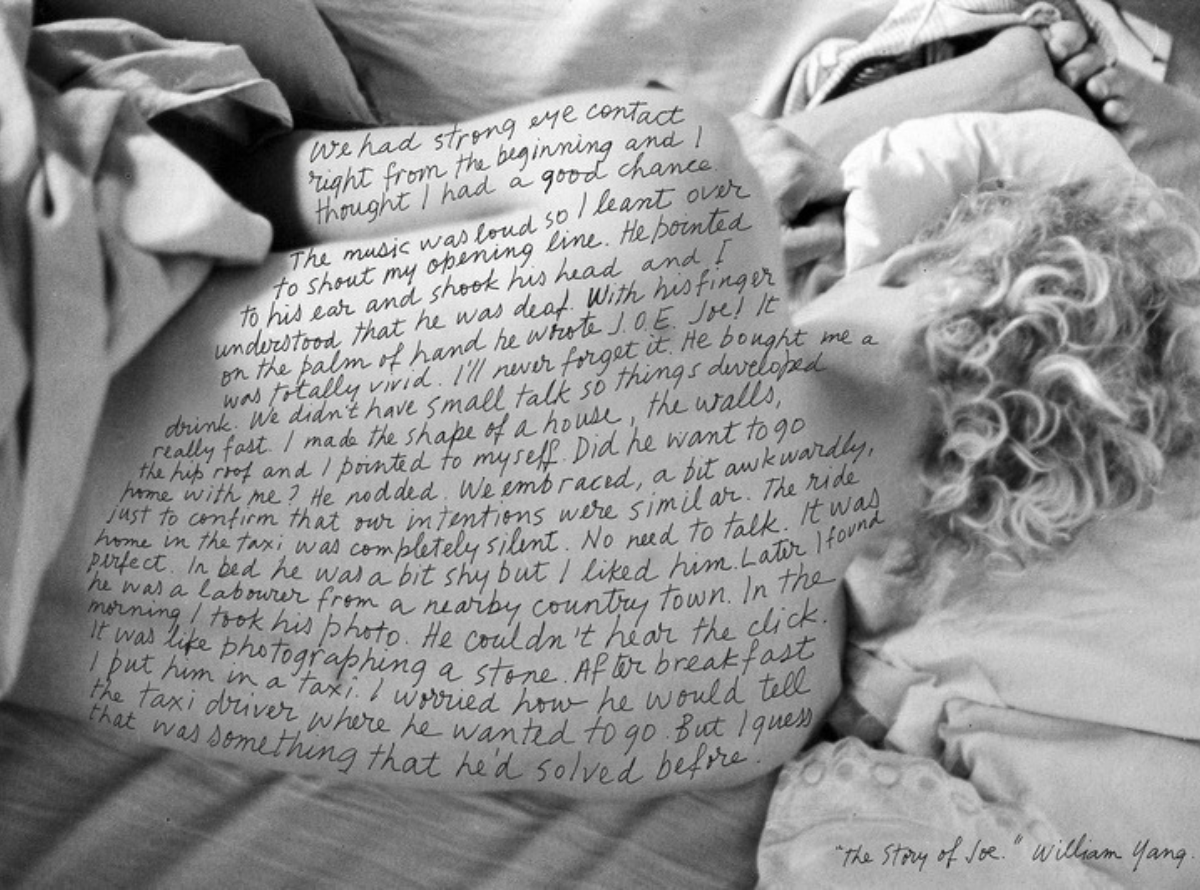 We had strong eye contact
right from the beginning and I
thought I had a good chance.
The music was loud so I leant over
to shout my opening line. He pointed
to his ear and shook his head and I
understood that he was deaf. With his finger
on the palm of hand he wrote J.O.E. Joe! It
was totally vivid. I'll never forget it. He bought me a
drink. We didn't have small talk so things developed
really fast. I made the shape of a house, the walls,
the hip roof and I pointed to myself. Did he want to go
home with me? He nodded. We embraced, a bit awkwardly,
just to confirm that our intentions were similar. The ride
home in the taxi was completely silent. No need to talk. It was
perfect. In bed he was a bit shy but I liked him. Later I found
he was a labourer from a nearby country town. In the
morning I took his photo. He couldn't hear the click.
It was like photographing a stone. After breakfast
I put him in a taxi. I worried how he would tell
the taxi driver where he wanted to go. But I guess
that was something that he'd solved before.
"The Story of Joe." William Yang.